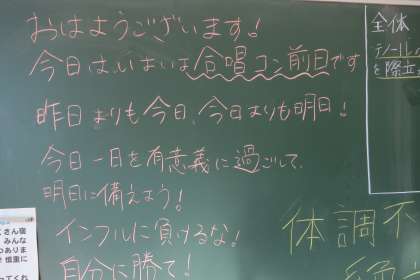 おはようございます!
今日はいよいよ合唱コン前日です
昨日よりも今日、今日よりも明日!
今日一日を有意義に過ごして、
明日に備えよう!
インフルに負けるな!
自分に勝て!
全体
テノール
を際立
体調不
さん宿
みんな